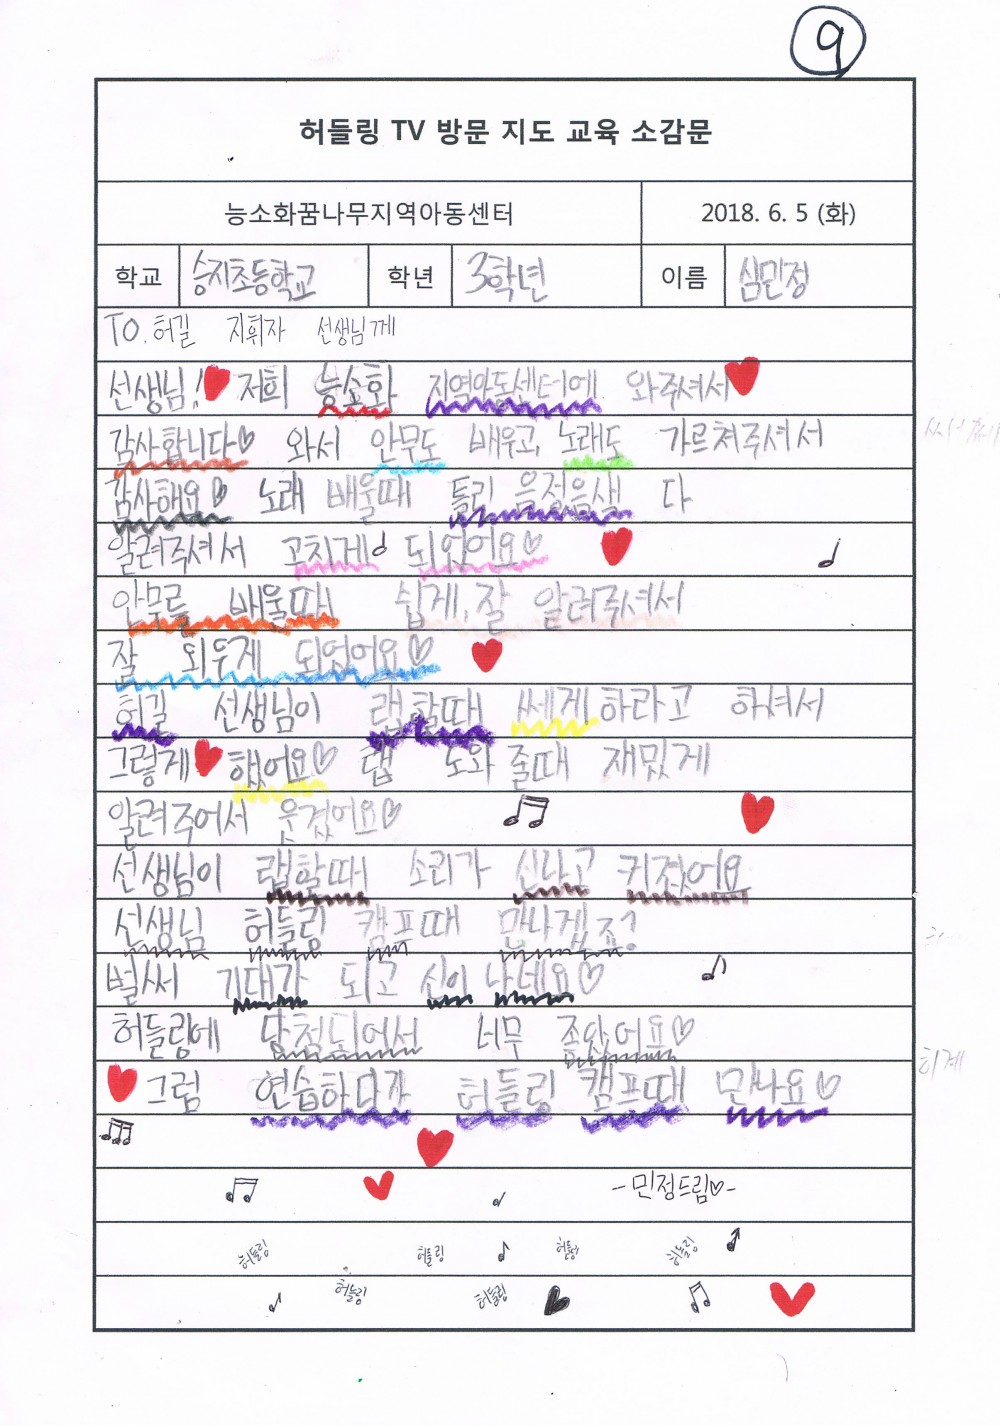 9
허들링 TV 방문 지도 교육 소감문
능소화꿈나무지역아동센터 2018. 6. 5 (화)
학교 승지초등학교 학년 3학년 이름 심민정
TO. 허길 지휘자 선생님께
선생님! 저희 능소화 지역아동센터에 와주셔서
감사합니다 와서 안무도 배우고, 노래도 가르쳐주셔서
감사해요 노래 배울때 틀린 음정음색 다
알려주셔서 고치게 되었어요
안무를 배울때 쉽게, 잘 알려주셔서
잘 외우게 되었어요
허길 선생님이 랩할때 쎄게 하라고 하셔서
그렇게 했어요 랩 도와줄때 재밌게
알려주어서 웃겼어요
선생님이 랩할때 소리가 신나고 커졌어요
선생님 허들링 캠프때 만나겠죠?
벌써 기대가 되고 신이 나네요
허들링에 당첨되어서 너무 좋았어요
그럼 연습하다가 허들링 캠프때 만나요
-민정드림-
허들링 허들링 허들링 허들링
허들링 허들링